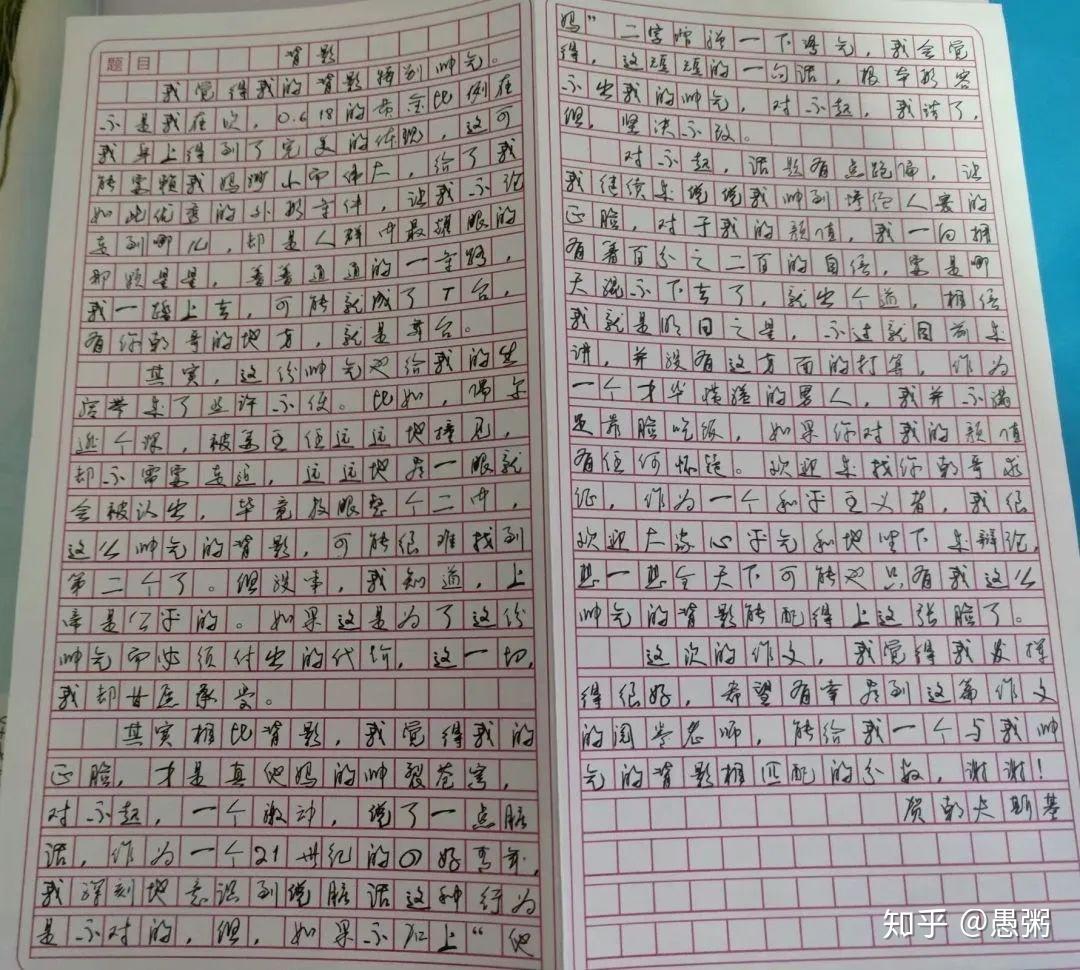 题目 背影
我觉得我的背影特别帅气。
不是我在吹，0.618的黄金比例在
我身上得到了完美的体现，这可
能要赖我妈渺小而伟大，给了我
如此优秀的外形条件，让我不论
走到哪儿，却是人群中最耀眼的
那颗星星，普普通通的一条路，
我一踏上去，可能就成了T台，
有你朝哥的地方，就是舞台。
其实，这份帅气也给我的生
活带来了些许不便。比如，偶尔
逃个课，被主任远远地撞见，
却不需要走近，远远地看一眼就
会被认出，毕竟放眼整个二中，
这么帅气的背影，可能很难找到
第二个了。但没事，我知道，上
帝是公平的。如果这是为了这份
帅气而必须付出的代价，这一切，
我却甘愿承受。
其实相比背影，我觉得我的
正脸，才是真他妈的帅裂苍穹，
对不起，一个激动，说了一点脏
话，作为一个21世纪的好青年，
我深刻地意识到说脏话这种行为
是不对的，但，如果不加上“他
妈”二字加强一下语气，我会觉
得，这短短的一句话，根本形容
不出我的帅气，对不起，我错了，
但，坚决不改。
对不起，话题有点跑偏，让
我继续来说说我帅到惨绝人寰的
正脸，对于我的颜值，我一向拥
有着百分之二百的自信，要是哪
天混不下去了，就出个道，相信
我就是明日之星，不过就目前来
讲，并没有这方面的打算，作为
一个才华横溢的男人，我并不满
足靠脸吃饭，如果你对我的颜值
有任何怀疑。欢迎来找你朝哥求
证，作为一个和平主义者，我很
欢迎大家心平气和地坐下来辩论，
想一想全天下可能也只有我这么
帅气的背影能配得上这张脸了。
这次的作文，我觉得我发挥
得很好，希望有幸看到这篇作文
的阅卷老师，能给我一个与我帅
气的背影相匹配的分数，谢谢！
贺朝夫斯基
知乎 @愚粥